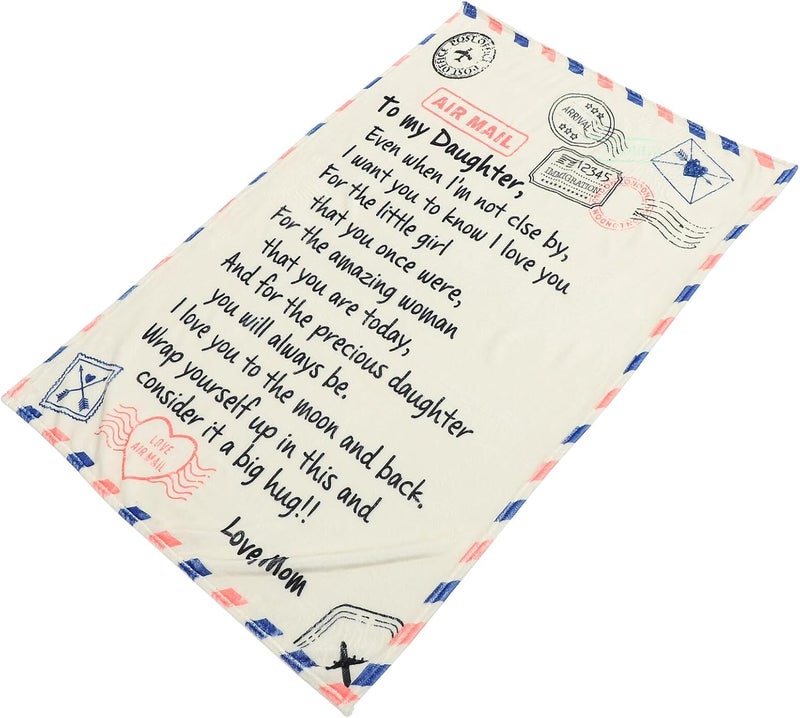 POST OFFICE POST OFFICE
AIR MAIL
ARRIVAL
12345
IMMIGRATION
LONDON
To my Daughter,
Even when I'm not clse by,
I want you to know I love you
For the little girl
that you once were,
For the amazing woman
that you are today,
And for the precious daughter
you will always be.
I love you to the moon and back.
Wrap yourself up in this and
consider it a big hug!!
Love,Mom
LOVE
AIR MAIL